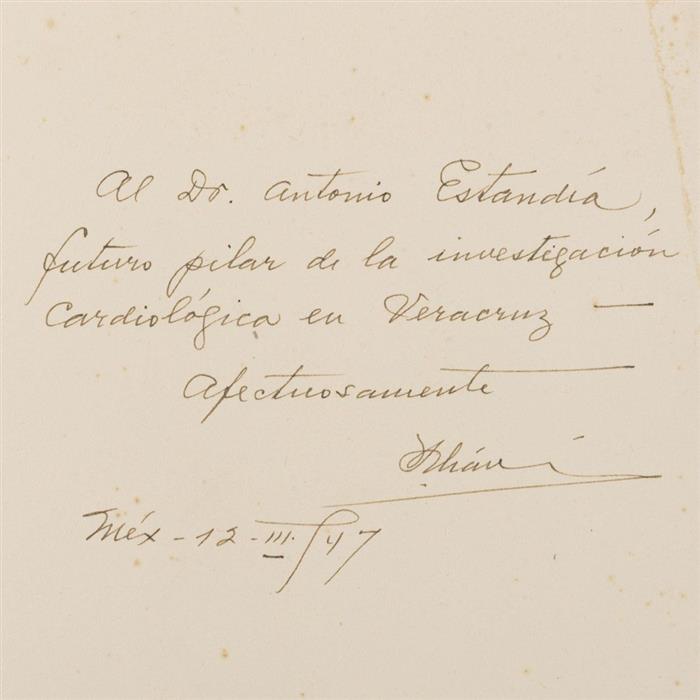 Al Dr. Antonio Estandía,
futuro pilar de la investigación
Cardiológica en Veracruz —
Afectuosamente
Méx - 12 - III. / 47